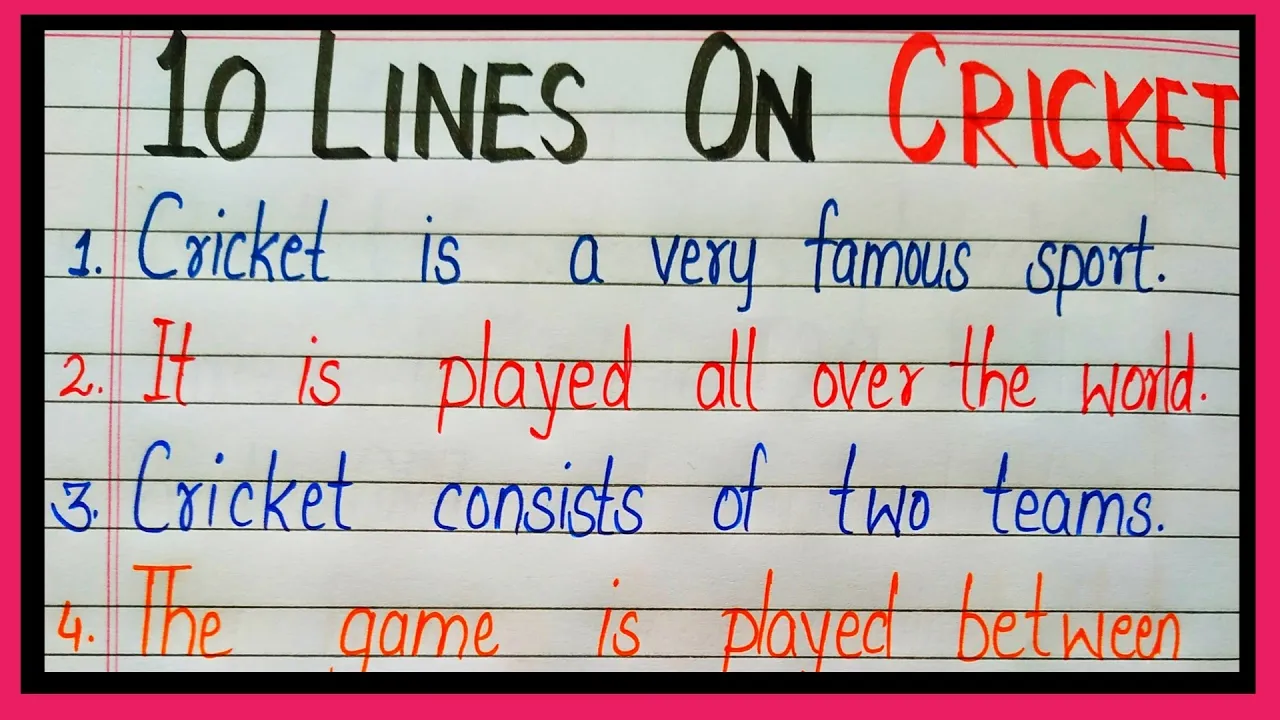 10 LINES ON CRICKET
1. Cricket is a very famous sport.
2. It is played all over the world.
3. Cricket consists of two teams.
4. The game is played between